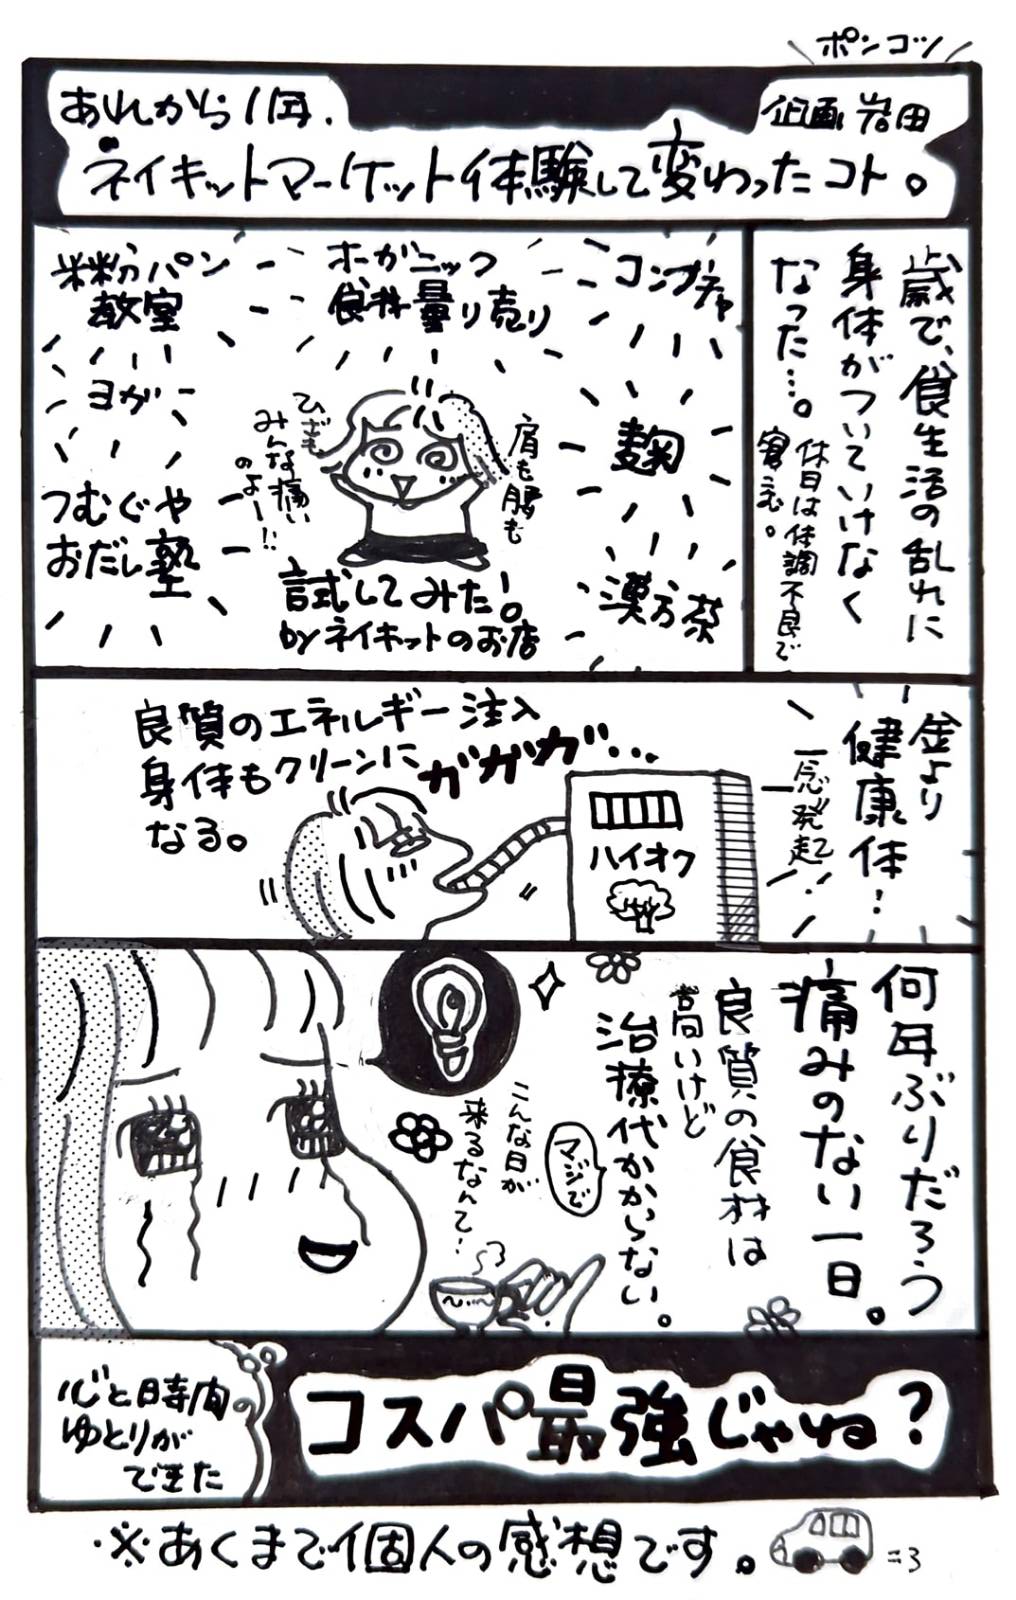 ポンコツ
企画 岩田
あれから1年、
ネイキットマーケット体験して変わったコト。
歳で、食生活の乱れに
身体がついていけなく
なった…。
休日は体調不良で
寝込む。
米粉パン
教室
オーガニック
食材量り売り
コンブチャ
ヨガ
麹
つむぐや
おだし塾
漢方茶
肩も腰も
ひざも
みんな痛い
のよー!!
試してみた!
byネイキットのお店
金より
健康体!
一念発起
良質のエネルギー注入
身体もクリーンに
なる。
ガガガ…
ハイオク
何年ぶりだろう
痛みのない一日。
良質の食材は
高いけど
治療代かからない。
マジで
こんな日が
来るなんて!
心と時間の
ゆとりが
できた
コスパ最強じゃね?
※あくまで個人の感想です。